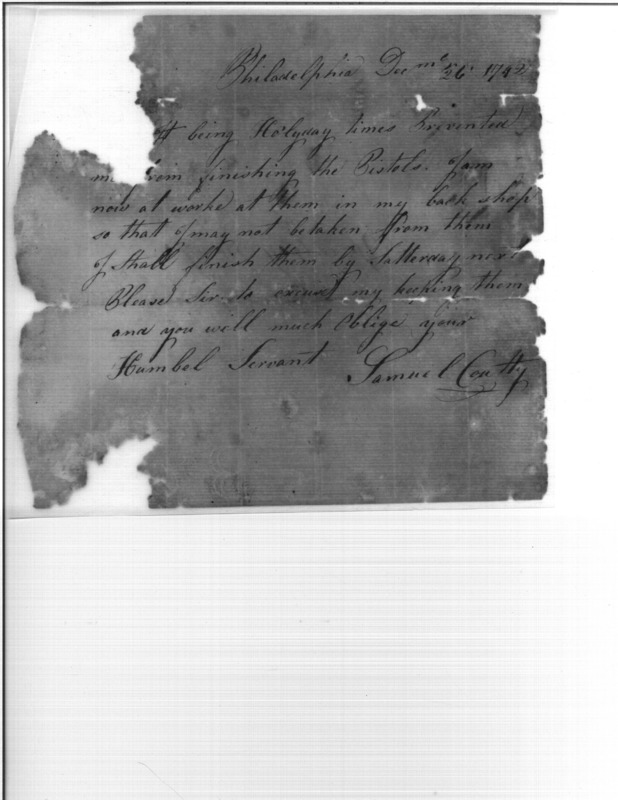 Philadelphia Decmr 26 179
It being Holyday times Prevented
me from finishing the Pistols. I am
now at worke at them in my back shop
so that I may not be taken from them
I Shall finish them by Satterday next
Please Sir to excuse my keeping them
and you will much Oblige your
Humbel Servant Samuel Coutty